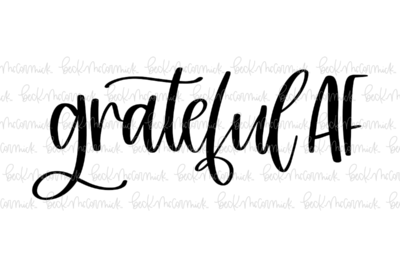 grateful AF